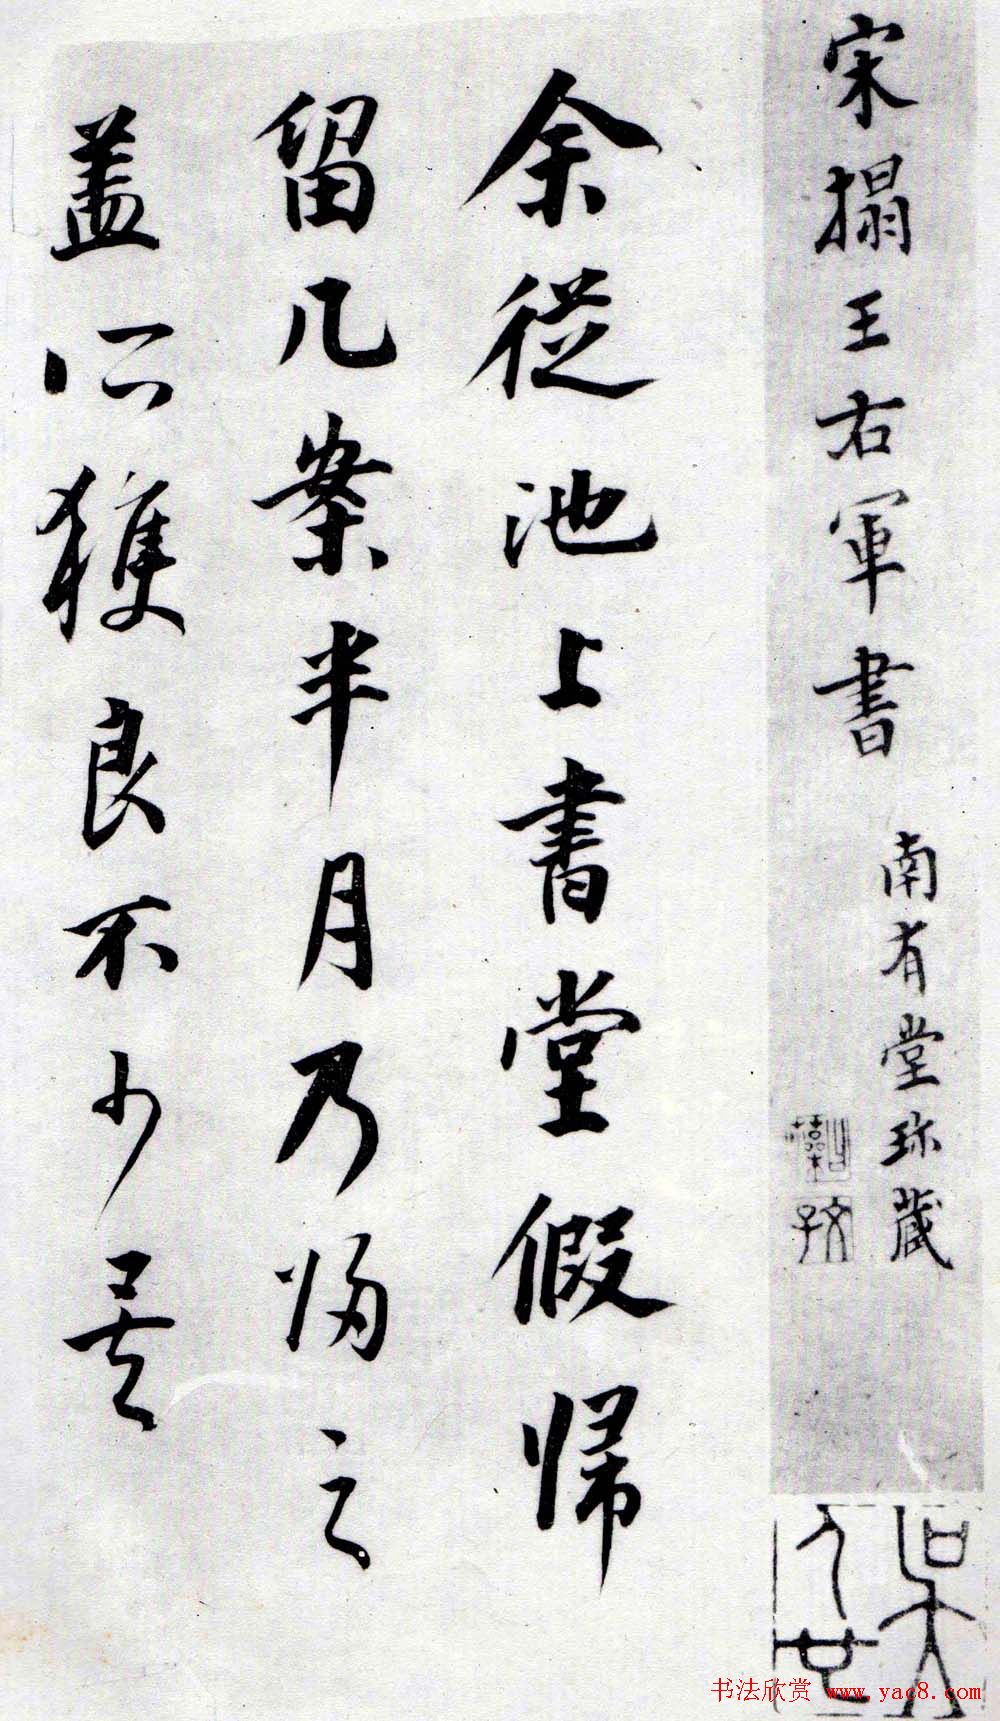 宋搨王右軍書
南有堂珎藏
余從池上書堂假帰
留几案半月乃归之
盖所獲良不少矣
书法欣赏 www.yac8.com